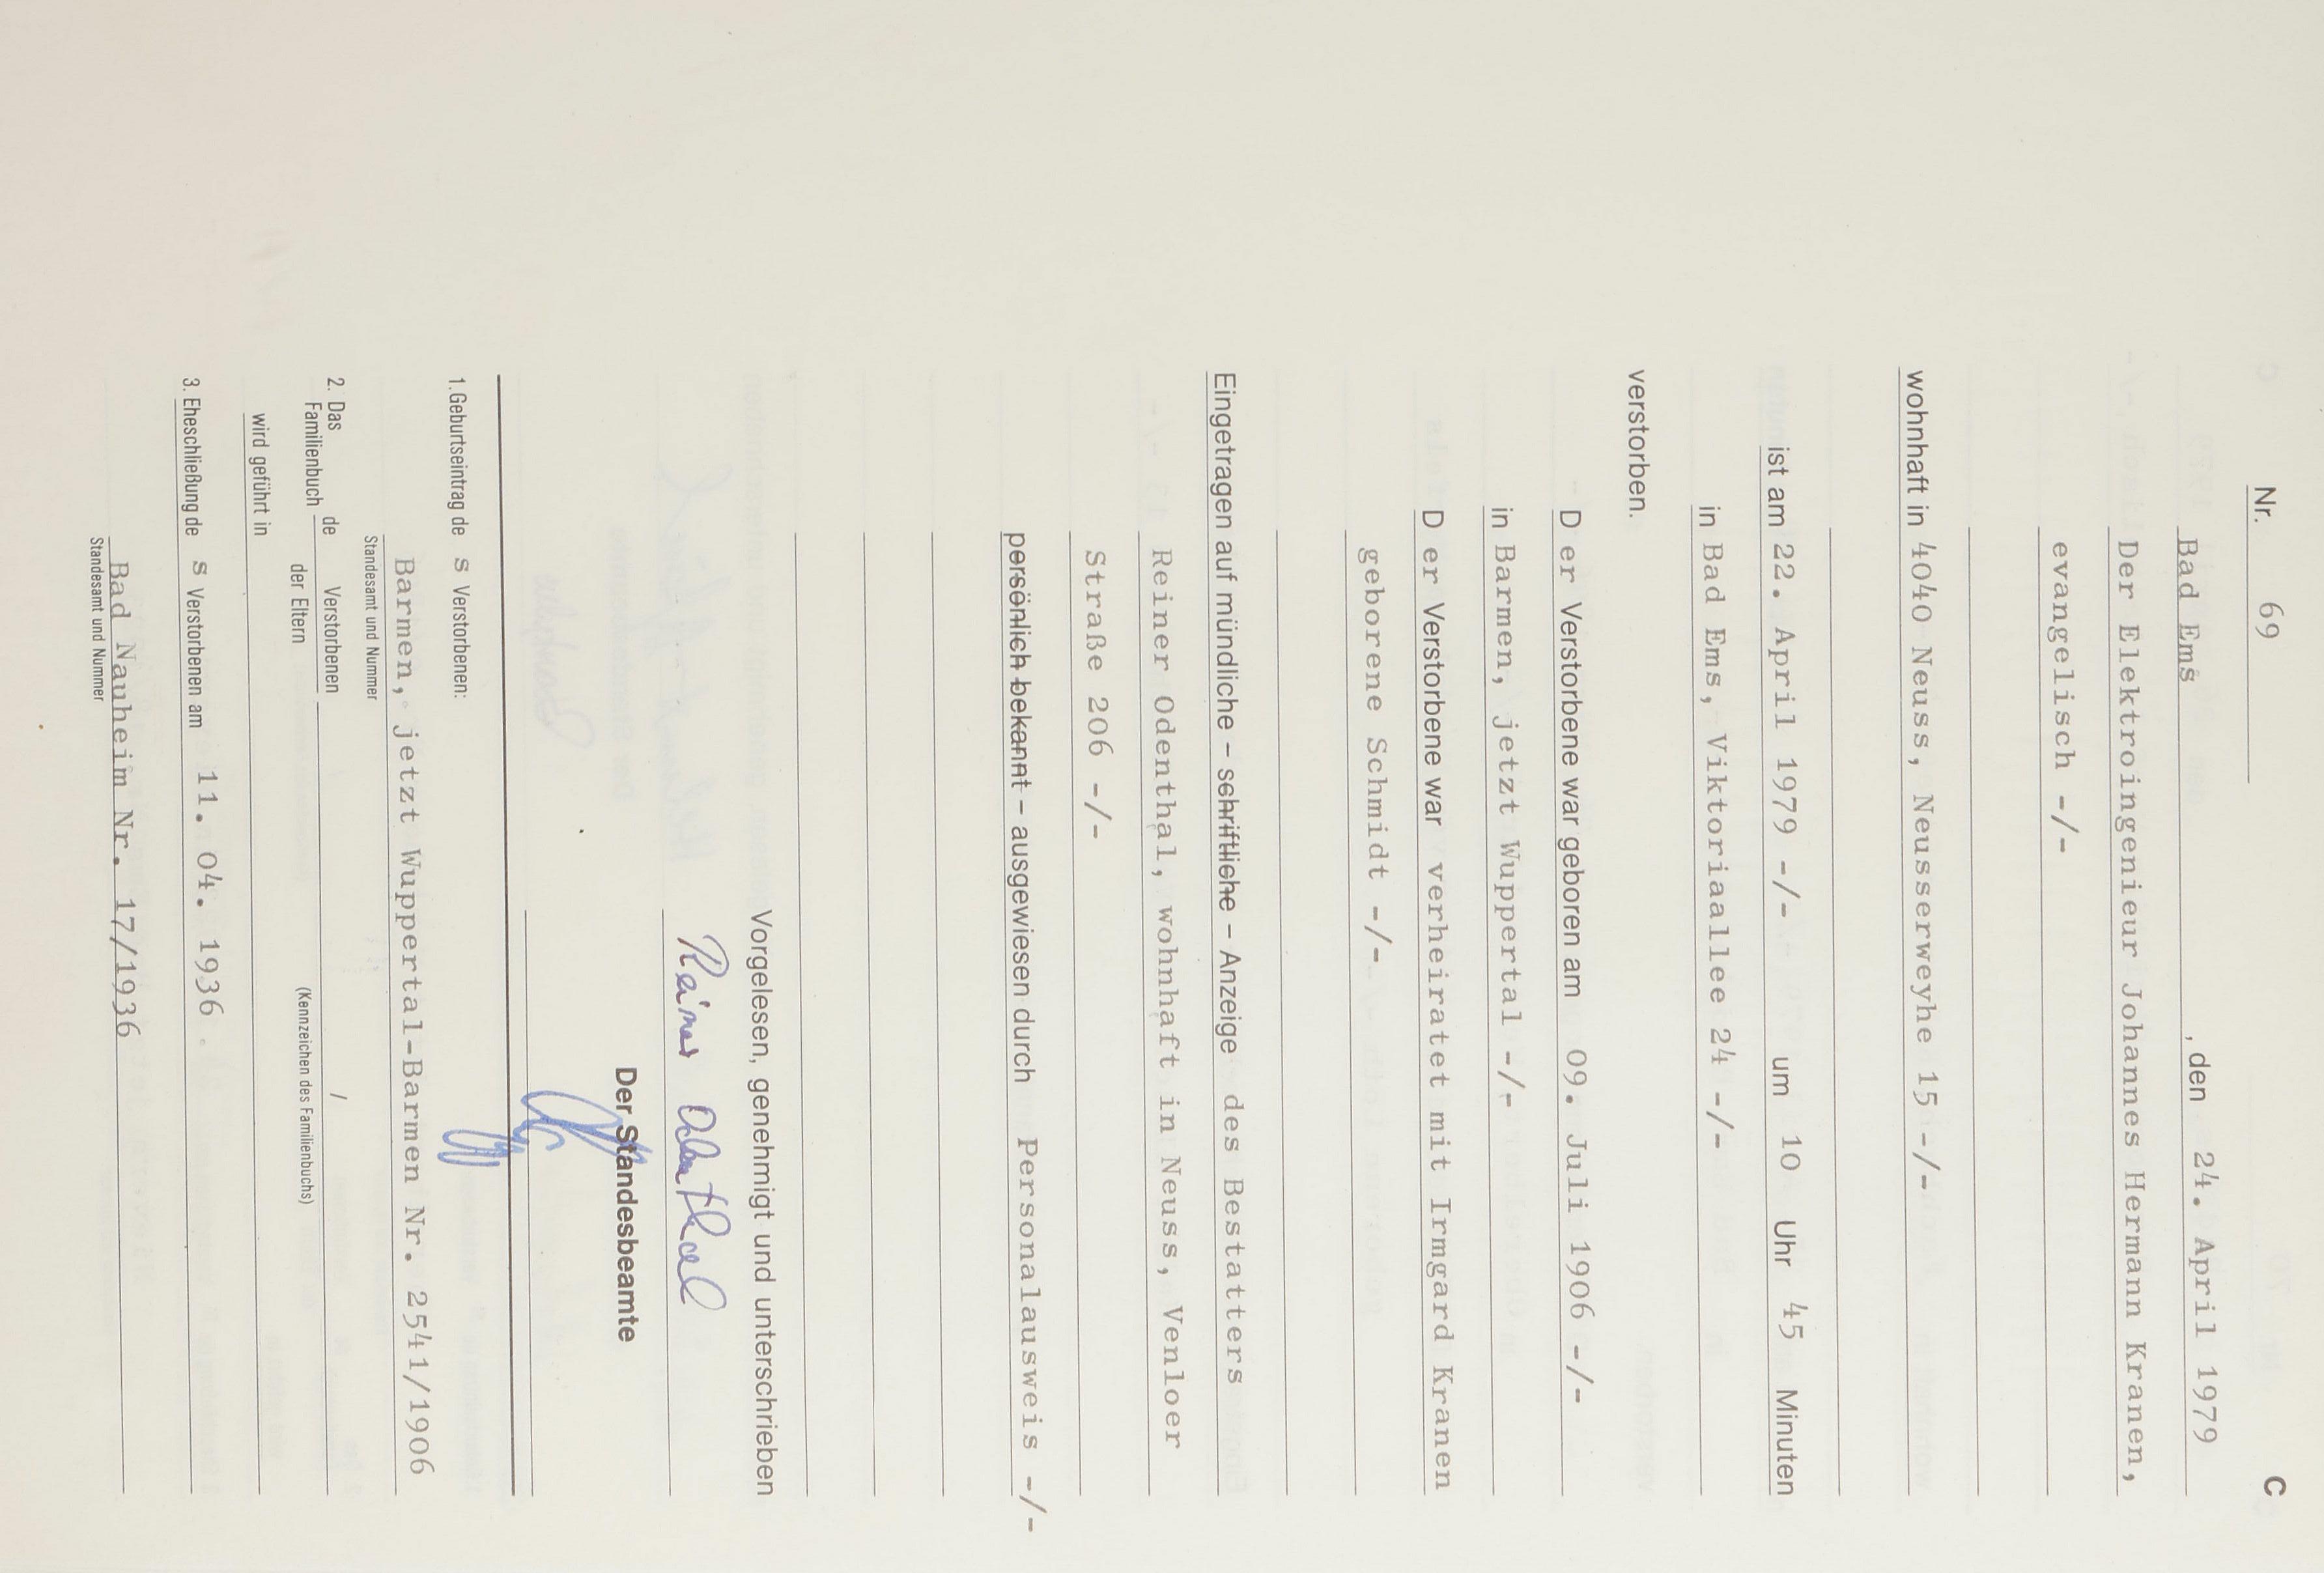 C
Nr. 69
Bad Ems, den 24. April 1979
Der Elektroingenieur Johannes Hermann Kranen,
evangelisch -/-
wohnhaft in 4040 Neuss, Neusserweyhe 15 -/-
ist am 22. April 1979 -/- um 10 Uhr 45 Minuten
in Bad Ems, Viktoriaallee 24 -/-
verstorben.
D er Verstorbene war geboren am 09. Juli 1906 -/-
in Barmen, jetzt Wuppertal -/-
D er Verstorbene war verheiratet mit Irmgard Kranen
geborene Schmidt -/-
Eingetragen auf mündliche – schriftliche – Anzeige des Bestatters
Reiner Odenthal, wohnhaft in Neuss, Venloer
Straße 206 -/-
persönlich bekannt – ausgewiesen durch Personalausweis -/-
Vorgelesen, genehmigt und unterschrieben
Reiner Odenthal
Der Standesbeamte
1. Geburtseintrag de s Verstorbenen:
Barmen, jetzt Wuppertal-Barmen Nr. 2541/1906
Standesamt und Nummer
2. Das Familienbuch de Verstorbenen /
der Eltern (Kennzeichen des Familienbuchs)
wird geführt in
3. Eheschließung de s Verstorbenen am 11. 04. 1936
Bad Nauheim Nr. 17/1936
Standesamt und Nummer